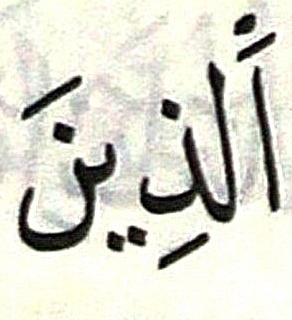 اَلذِينَ